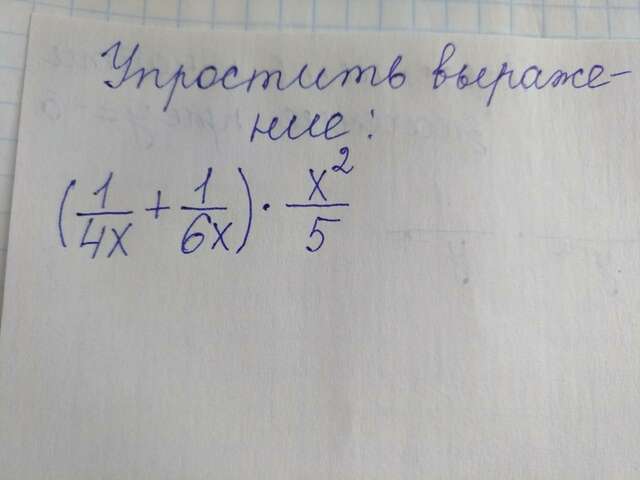 Упростить выраже-
ние:
(1/4x + 1/6x) · x²/5